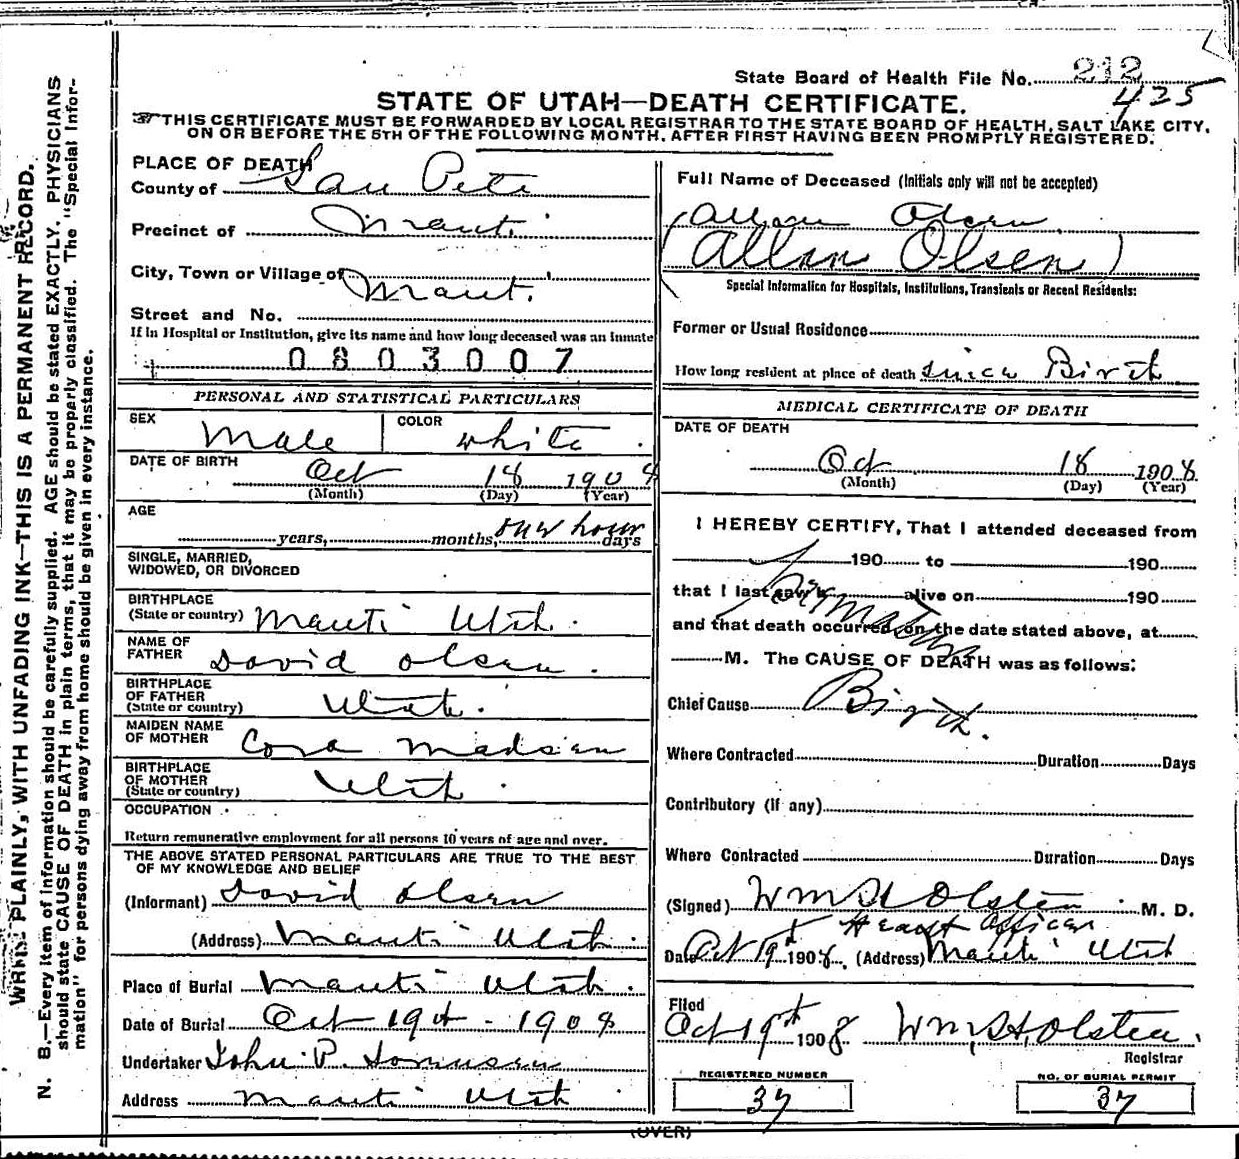 State Board of Health File No. 212
425
STATE OF UTAH—DEATH CERTIFICATE.
THIS CERTIFICATE MUST BE FORWARDED BY LOCAL REGISTRAR TO THE STATE BOARD OF HEALTH, SALT LAKE CITY,
ON OR BEFORE THE 5TH OF THE FOLLOWING MONTH, AFTER FIRST HAVING BEEN PROMPTLY REGISTERED.
PLACE OF DEATH
County of San Pete
Precinct of Manti
City, Town or Village of Manti.
Street and No.
If in Hospital or Institution, give its name and how long deceased was an inmate
0803007
PERSONAL AND STATISTICAL PARTICULARS
SEX Male COLOR white.
DATE OF BIRTH Oct 18 1908
(Month) (Day) (Year)
AGE
years, months, one hour days
SINGLE, MARRIED,
WIDOWED, OR DIVORCED
BIRTHPLACE
(State or country) Manti Utah.
NAME OF
FATHER David Olsen.
BIRTHPLACE
OF FATHER
(State or country) Utah.
MAIDEN NAME
OF MOTHER Cora Madsen
BIRTHPLACE
OF MOTHER
(State or country) Utah.
OCCUPATION
Return remunerative employment for all persons 10 years of age and over.
THE ABOVE STATED PERSONAL PARTICULARS ARE TRUE TO THE BEST
OF MY KNOWLEDGE AND BELIEF
(Informant) David Olsen
(Address) Manti Utah.
Place of Burial Manti Utah.
Date of Burial Oct 19th - 1908
Undertaker John P.
Address Manti Utah
Full Name of Deceased (Initials only will not be accepted)
Allan Olsen
(Allan Olsen)
Special Information for Hospitals, Institutions, Transients or Recent Residents:
Former or Usual Residence
How long resident at place of death since Birth
MEDICAL CERTIFICATE OF DEATH
DATE OF DEATH
Oct 18 1908
(Month) (Day) (Year)
I HEREBY CERTIFY, That I attended deceased from
190 to 190
that I last saw h alive on 190
and that death occurred, on the date stated above, at
M. The CAUSE OF DEATH was as follows:
Premature
Chief Cause Birth.
Where Contracted Duration Days
Contributory (If any)
Where Contracted Duration Days
(Signed) Wm H Olsten M. D.
Health Officer
Date Oct 19th 1908, (Address) Manti Utah
Filed
Oct 19th 1908 Wm, H, Olsten.
Registrar
REGISTERED NUMBER
37
NO. OF BURIAL PERMIT
37
(OVER)
WRITE PLAINLY, WITH UNFADING INK—THIS IS A PERMANENT RECORD.
N. B.—Every item of information should be carefully supplied. AGE should be stated EXACTLY. PHYSICIANS
should state CAUSE OF DEATH in plain terms, that it may be properly classified. The "Special Infor-
mation" for persons dying away from home should be given in every instance.